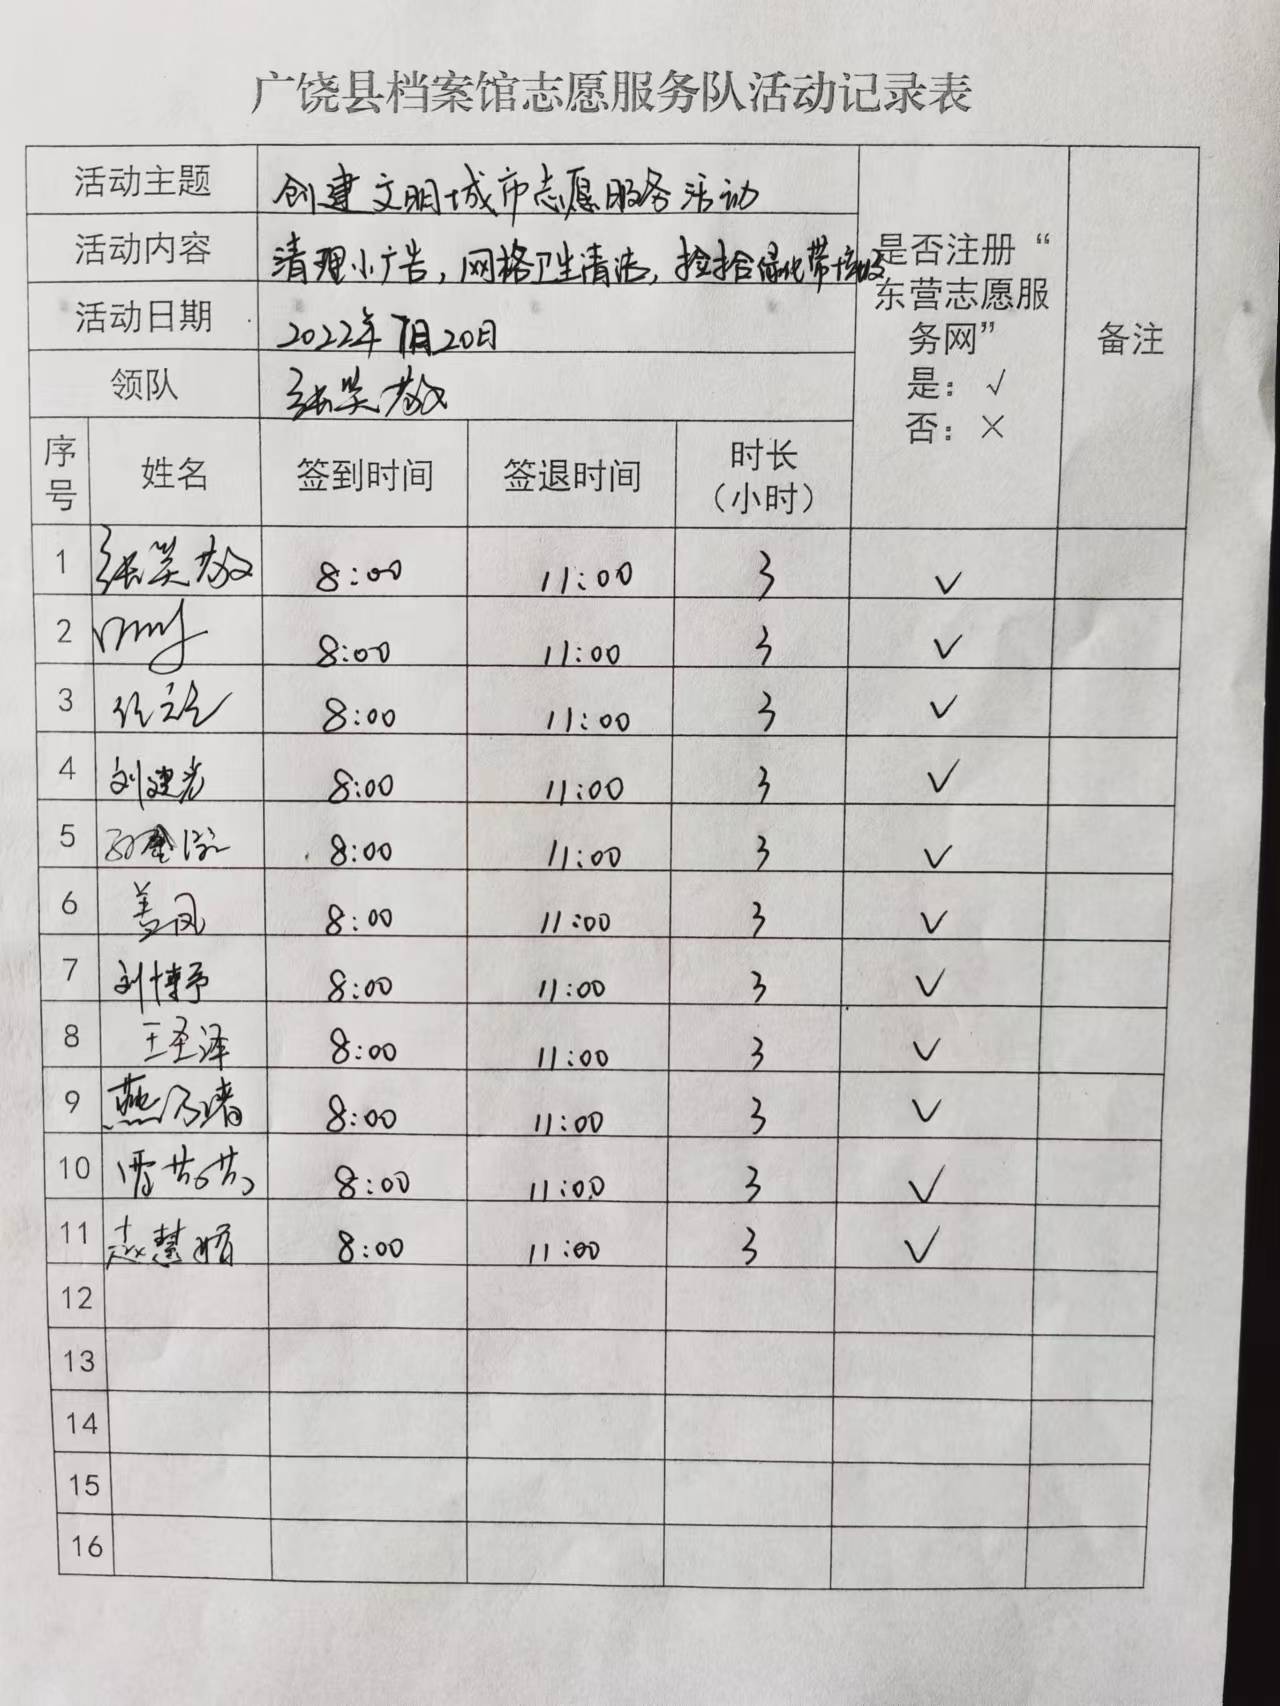 广饶县档案馆志愿服务队活动记录表
活动主题 创建文明城市志愿服务活动
活动内容 清理小广告，网格卫生清洁，捡拾绿化带垃圾
活动日期 2022年7月20日
领队 张笑敬
是否注册“
东营志愿服
务网”
是：√
否：×
备注
序号 姓名 签到时间 签退时间 时长（小时）
1 张笑敬 8:00 11:00 3 √
2 8:00 11:00 3 √
3 8:00 11:00 3 √
4 刘建光 8:00 11:00 3 √
5 8:00 11:00 3 √
6 善凤 8:00 11:00 3 √
7 刘博予 8:00 11:00 3 √
8 王圣泽 8:00 11:00 3 √
9 燕乃 8:00 11:00 3 √
10 8:00 11:00 3 √
11 赵慧娟 8:00 11:00 3 √
12
13
14
15
16